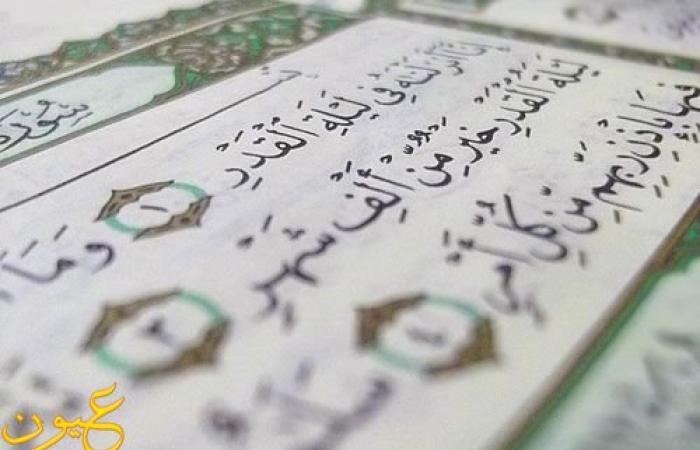 سُورَة
بِسْـ
إِنَّآ أَنزَلْنَٰهُ فِى لَيْلَةِ ٱلْقَدْرِ ١ وَمَآ
لَيْلَةُ ٱلْقَدْرِ خَيْرٌ مِّنْ أَلْفِ شَهْرٍ ٣
فِيهَا بِإِذْنِ رَبِّهِم مِّن كُلِّ أَمْرٍ ٤ سَلَٰمٌ
عيون